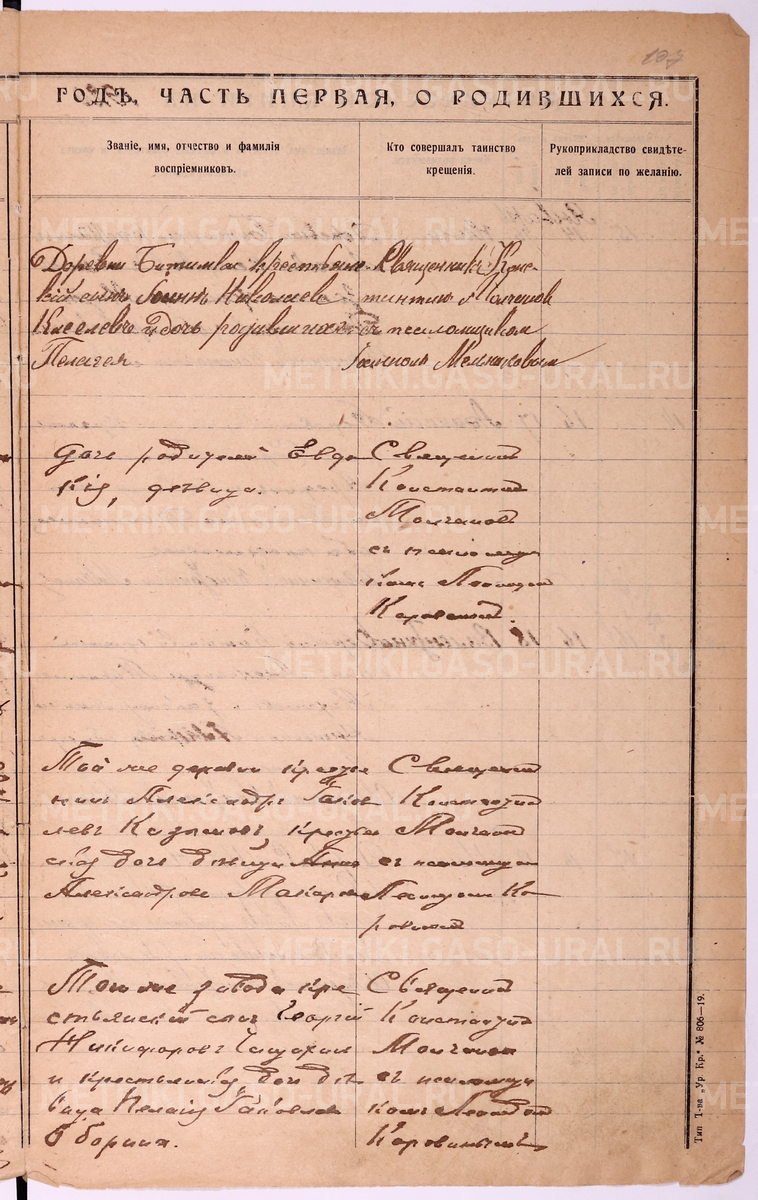 137
ГОДЪ, ЧАСТЬ ПЕРВАЯ, О РОДИВШИХСЯ.
Званіе, имя, отчество и фамилія
воспріемниковъ.
Кто совершалъ таинство
крещенія.
Рукоприкладство свидѣте-
лей записи по желанію.
Деревни крестьян-
скій сынъ Іоаннъ Николаевъ
Киселевъ и дочь родившихъ
Пелагея
Священникъ Конс-
тантинъ Молчановъ
съ псаломщикомъ
Іоанномъ Мельниковым
дочь родителей Евдо
кія, девица.
Священник
Константин
Молчановъ
съ псаломщи
комъ Леонидом
Коровиным.
Той же деревни крестья
нинъ Александръ Яков
левъ крестьян
ская дочь девица Анна
Александрова Макарова
Священник
Константин
Молчанов
съ псаломщи
Леонидом Ко
ровиным
Того же завода кре
стьянский сын Георгій
Никифоровъ
и крестьянская дочь де
вица Пелагія Яковлева
Оборина.
Священник
Константин
Молчанов
съ псаломщи
комъ Леонидом
Коровинымъ
Тип. Т-ва „Ур. Кр." № 806—19.
METRIKI.GASO-URAL.RU